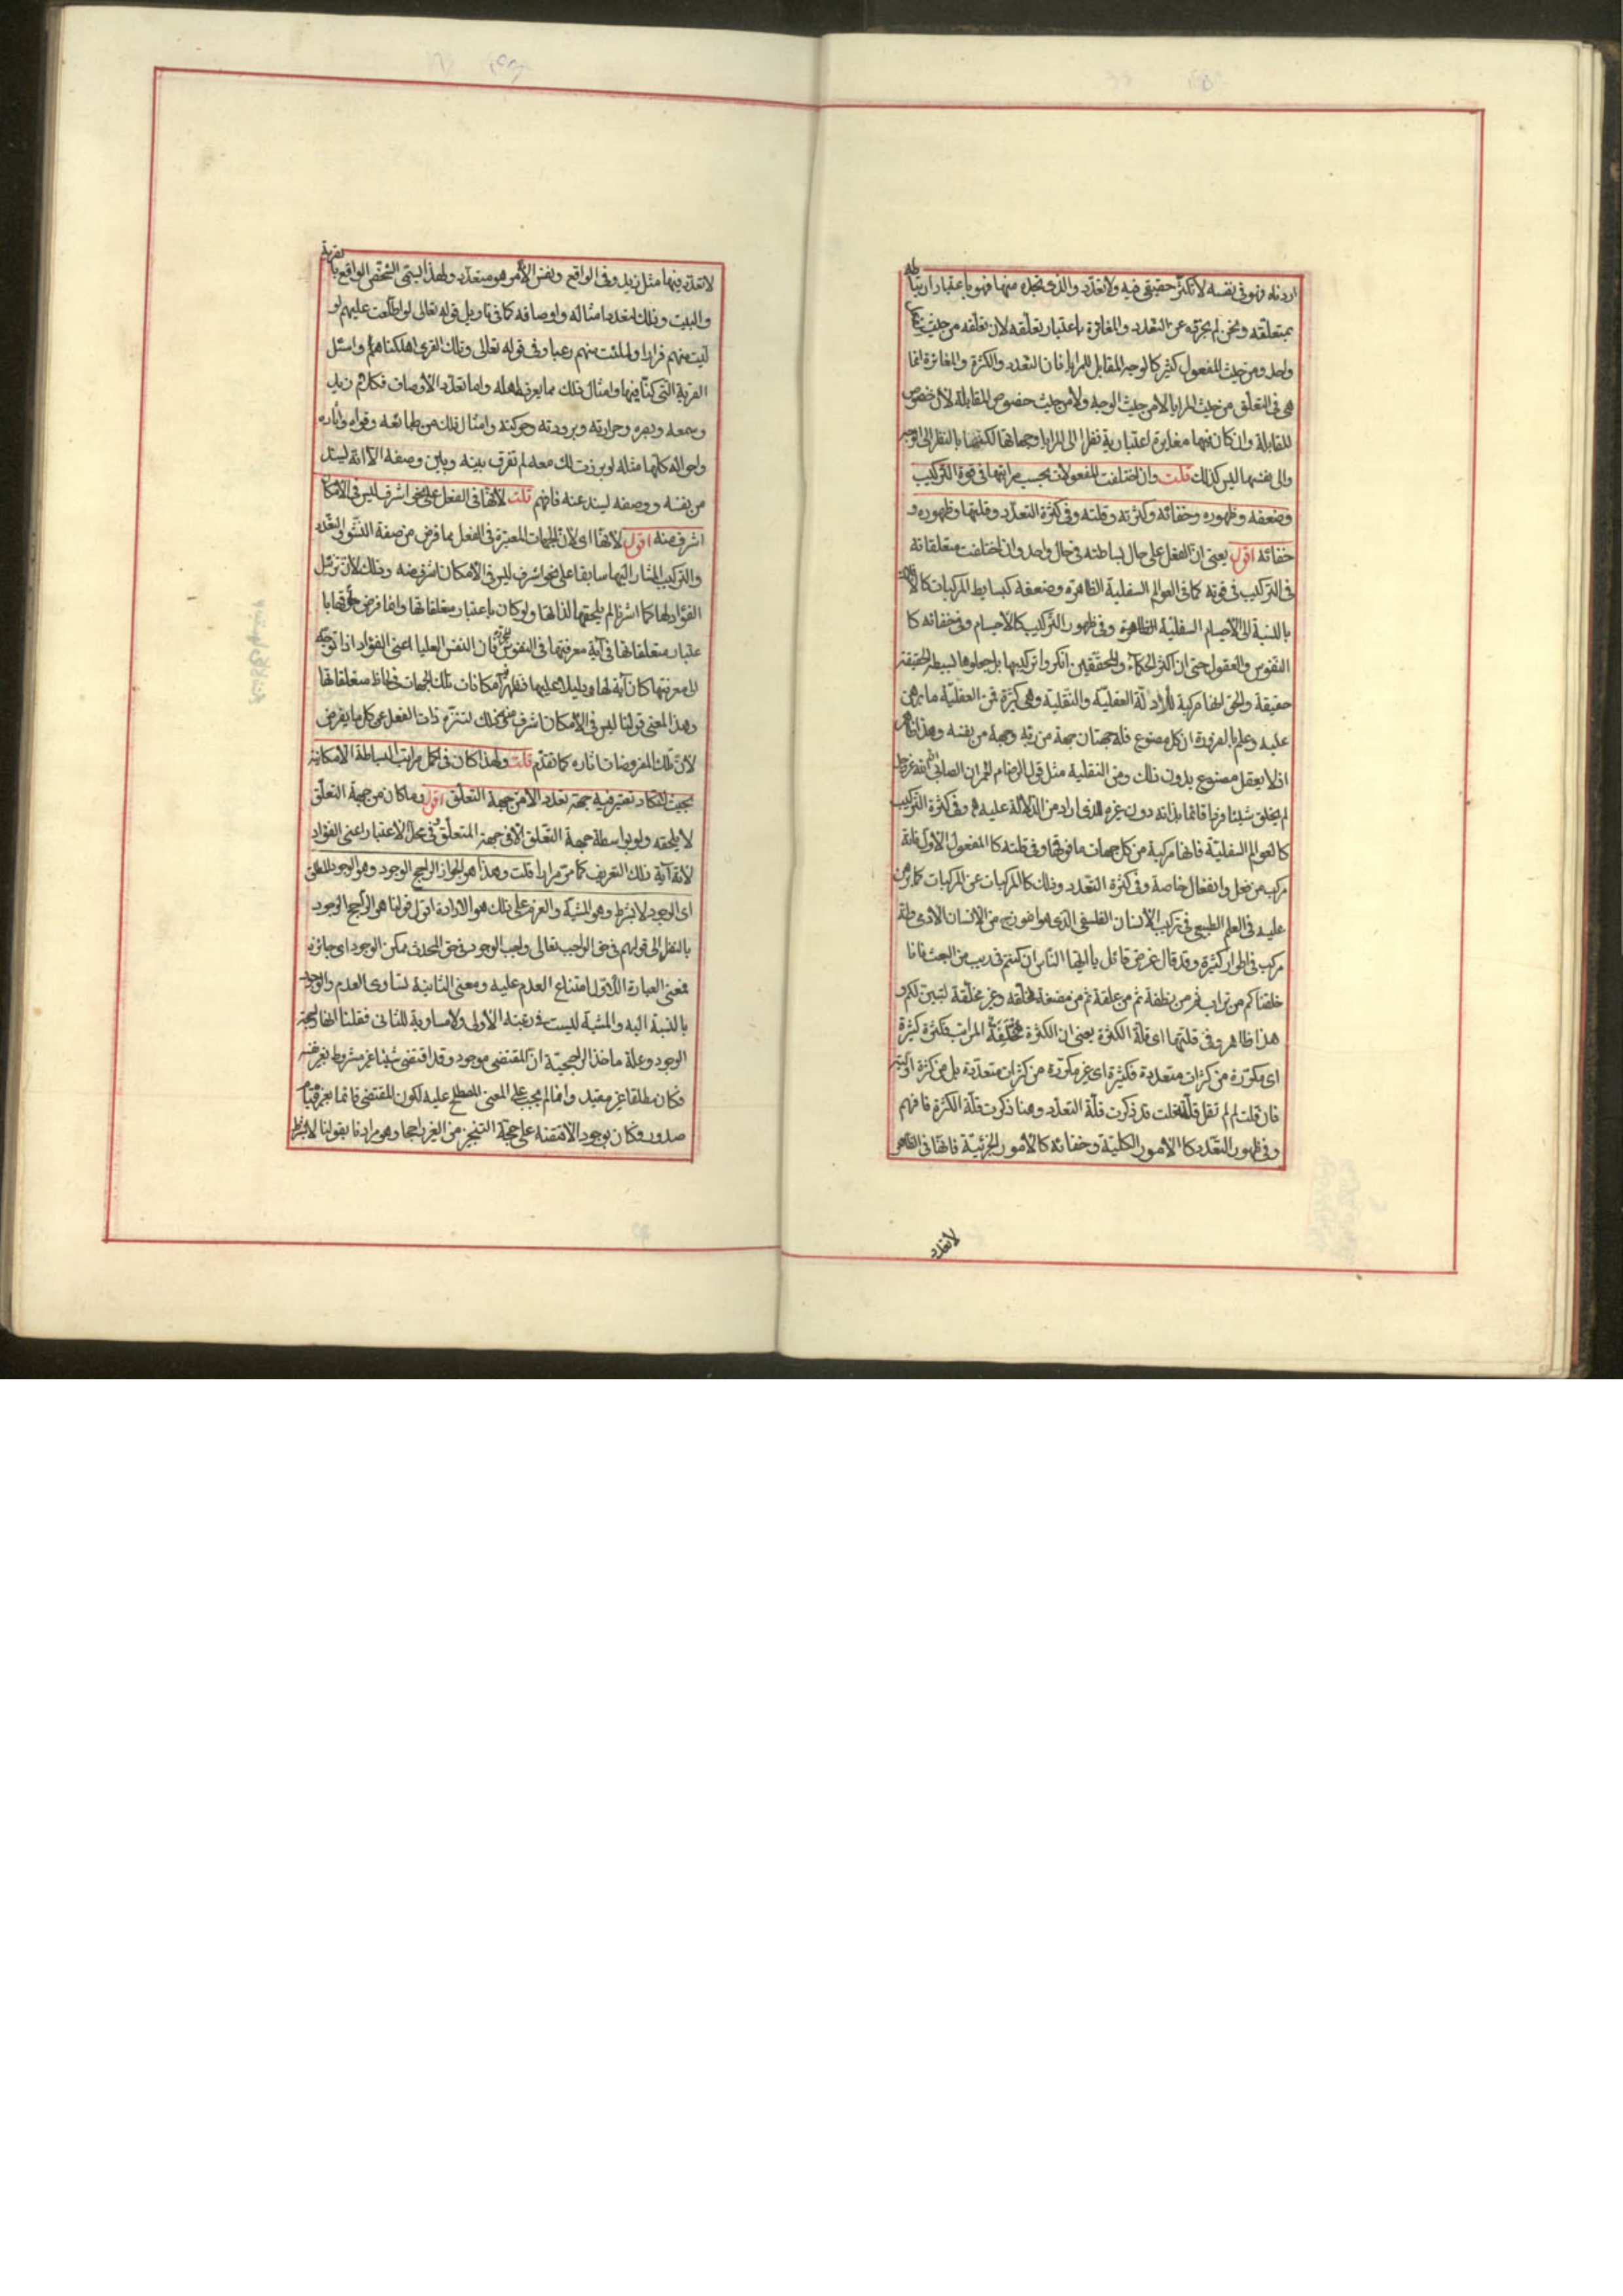 اردناه وهو فى نفسه لا تكثر حقيقى فيه ولا تعدد والذى تجده منها فهو باعتبار ارتباطه
بمتعلقه ونحن لم نجرّه عن التعدد والمغائرة باعتبار تعلّقه لان تعلّقه من حيث
واحد ومن حيث المفعول كثير كالوجه المقابل للمرايا فان التعدد والكثرة والمغائرة انما
هى فى التعلّق من حيث المرايا لا من حيث الوجه ولا من حيث خصوص المقابلة لان خصوص
المقابلة وان كان فيها مغايرة اعتبارية نظرا الى المرايا وجهاتها لكنها بالنظر الى الوجه
والى نفسها ليس كذلك قلت وان اختلفت المفعولات بحسب مراتبها فى قوة التركيب
وضعفه وظهوره وخفائه وكثرته وقلته وفى كثرة التعدّد وقلتها وظهوره و
خفائه اقول يعنى ان الفعل على حال بساطته فى حال واحد وان اختلفت متعلقاته
فى التركيب فى قوته كما فى العوالم السفلية الظاهرة وضعفه كبسايط المركبات كالا
بالنسبة الى الاجسام السفلية الظاهرة وفى ظهور التركيب كالاجسام وفى خفائه كا
النفوس والعقول حتى ان اكثر الحكماء والمحققين انكروا تركيبها بل جعلوها بسيطة الحقيقة
حقيقة والحق انها مركبة للأدلّة العقليّة والنقلية وهى كثيرة فمن العقليّة ما برهن
عليه وعلم بالضرورة ان كل مصنوع فله جهتان جهة من ربّه وجهة من نفسه وهذا ظاهر
اذ لا يعقل مصنوع بدون ذلك ومن النقلية مثل قول الرضا م لعمران الصابى ان الله عز وجل
لم يخلق شيئا فردا قائما بذاته دون غيره للذى اراد من الدلالة عليه ه وفى كثرة التركيب
كالعوالم السفليّة فانها مركبة من كل جهات ما فوقها وفى قلته كالمفعول الاول فانه
مركب من فعل وانفعال خاصة وفى كثرة التعدد وذلك كالمركبات عن المركبات كما برهن
عليه فى العلم الطبيعى فى تركيب الانسان الفلسفى الذى هو انموزج من الانسان الآدمى
مركب فى اطوار كثيرة وقد قال عز من قائل يا ايها النّاس ان كنتم فى ريب من البعث فانا
خلقناكم من تراب ثم من نطفة ثم من علقة ثم من مضغة مخلّقة وغير مخلّقة لنبيّن لكم و
هذا ظاهر وفى قلتها اى قلّة الكثرة يعنى ان الكثرة مختلفة المراتب فكثرة كثيرة
اى مكرّرة من كثرات متعددة فكثيرة اى غير مكررة من كثرات متعدّدة بل من كثرة او كثير
فان قلت لم لم تقل قلّته قلت قد ذكرت قلّة التعدّد وهنا ذكرت قلّة الكثرة فافهم
وفى ظهور التعدّد كالامور الكليّة وخفائه كالأمور الجزئيّة فانها فى الظاهر
لا تعدد
لا تعدّد فيها مثل زيد وفى الواقع ونفس الأمر هو متعدّد ولهذا يسمّى الشخص الواقع بالقرية
والبيت وذلك لتعدد امثاله واوصافه كما فى تاويل قوله تعالى لو اطّلعت عليهم لو
لّيت منهم فرارا ولملئت منهم رعبا وفى قوله تعالى وتلك القرى اهلكناهم واسئل
القرية التى كنّا فيها وامثال ذلك مما يعرف اهله وانما تعدّد الاوصاف فكلام زيد
وسمعه وبصره وحرارته وبرودته وحركته وامثال ذلك من طبائعه وقواه وآثاره
واحواله كلها مثله لو برزت لك معه لم تفرق بينه وبين وصفه الا انه ليستند
من نفسه ووصفه ليستند عنه فافهم قلت لانها فى الفعل على نحو اشرف ليس فى الامكان
اشرف منه اقول لانها اى لان الجهات المعتبرة فى الفعل بما فرض من صفة النشو والتعدد
والتركيب المشار اليها سابقا على نحو اشرف ليس فى الامكان اشرف منه وذلك لان تنزّل
الفؤاد لها كما اشرنا لم يلحقها لذاتها ولو كان باعتبار متعلقاتها وانما فرض لحوقها با
عتبار متعلقاتها فى آية معرفتها فى النفوس فان النفس العليا اعنى الفؤاد اذا توجّه
الى معرفتها كان آية لها ودليلا عليها فظهر امكانات تلك الجهات فى لحاظ متعلقاتها
وهذا معنى قولنا ليس فى الامكان اشرف منه وذلك لتنزّه ذات الفعل عن كل ما يفرض
لانّ تلك المفروضات اثاره كما تقدّم قلت ولهذا كان فى اكمل مراتب البساطة الامكانية
بحيث لا تكاد تعتبر فيه جهة تعدد الا من جهة التعلّق اقول وما كان من جهة التعلّق
لا يلحقه ولو بواسطة جهة التعلّق الا فى جهة المتعلّق وفى محل الاعتبار اعنى الفؤاد
لانه آية ذلك التعريف كما مرّ مرارا قلت وهذا هو الجواز الراجح الوجود وهو الوجود المطلق
اى الوجود لا بشرط وهو المشيّة والعزم على ذلك هو الارادة اقول قولنا هو الراجح الوجود
بالنظر الى قولهم فى حق الواجب تعالى واجب الوجود وفى حق المحدث ممكن الوجود اى جائزه
فمعنى العبارة الاولى امتناع العدم عليه ومعنى الثانية تساوى العدم والوجود
بالنسبة اليه والمشيّة ليست فى رتبة الاولى ولا مساوية للثانى فقلنا انها راجحة
الوجود وعلة ماخذ الراجحيّة ان المقتضى موجود وقد اقتضى شيئا غير مشروط بغير نفسه
فكان مطلقا غير مقيد وانما لم يجب على المعنى المصطلح عليه لكون المقتضى قائما بغيره قيام
صدور فكان بوجود الاقتضاء على جهة التنجيز من الغير راجحا وهو مرادنا بقولنا لا بشرط